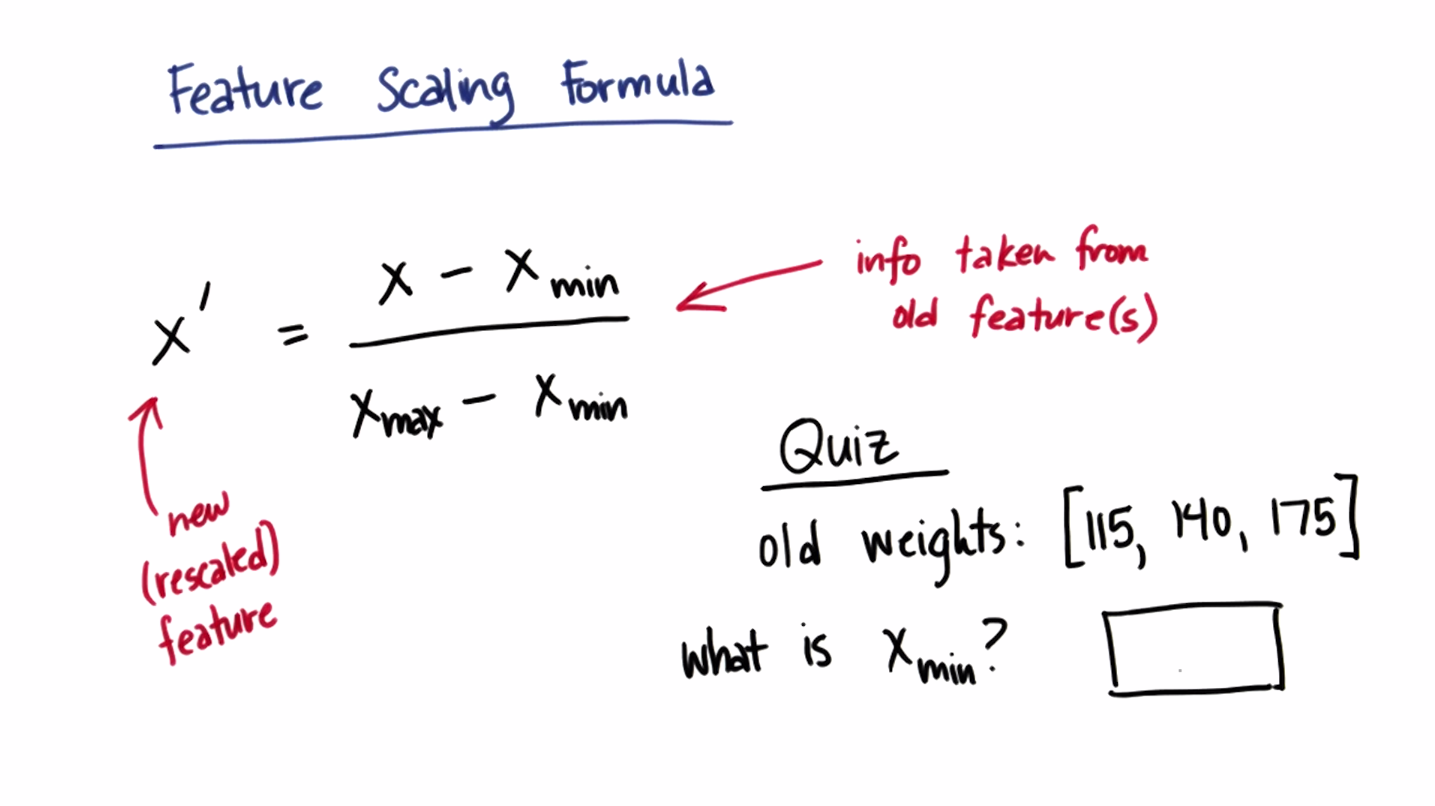 Feature Scaling Formula
x' = (x - x min) / (x max - x min)
info taken from
old feature(s)
new
(rescaled)
feature
Quiz
old weights: [115, 140, 175]
what is x min?